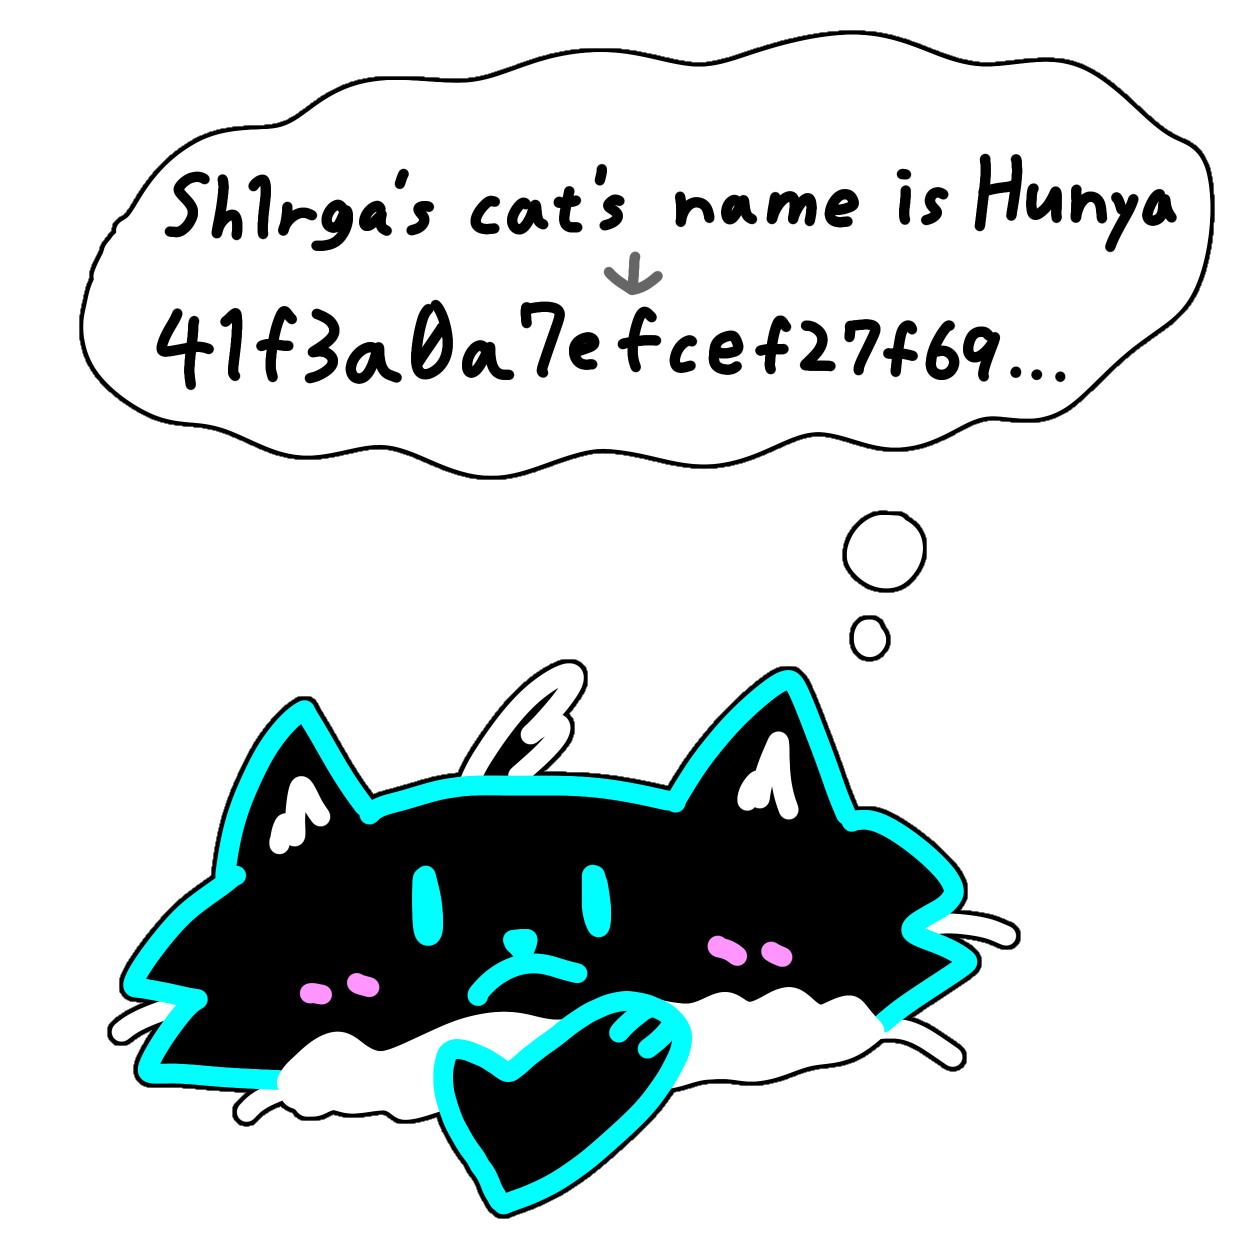 Sh1rga's cat's name is Hunya
↓
41f3a0a7efcef27f69...